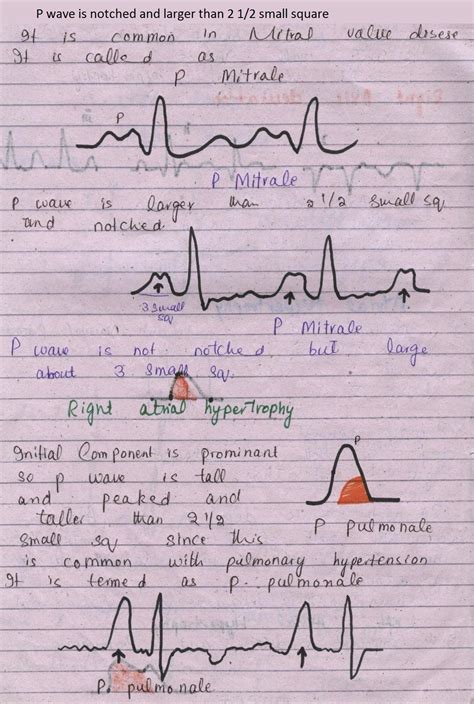 P wave is notched and larger than 2 1/2 small square
It is common in Mitral value disese
It is called as
P Mitrale
P
P Mitrale
P wave is larger than 2 1/2 small sq
and notched
3 small
sq
P Mitrale
P wave is not notched but large
about 3 small sq.
Right atrial hypertrophy
Initial Component is prominant
so p wave is tall
and peaked and
taller than 2 1/2
small sq since this
is common with pulmonary hypertension
It is termed as P. pulmonale
P
P pulmonale
P. pulmonale